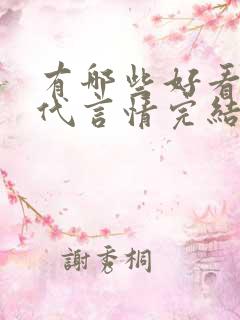 有哪些好看
代言情完結
謝秀桐